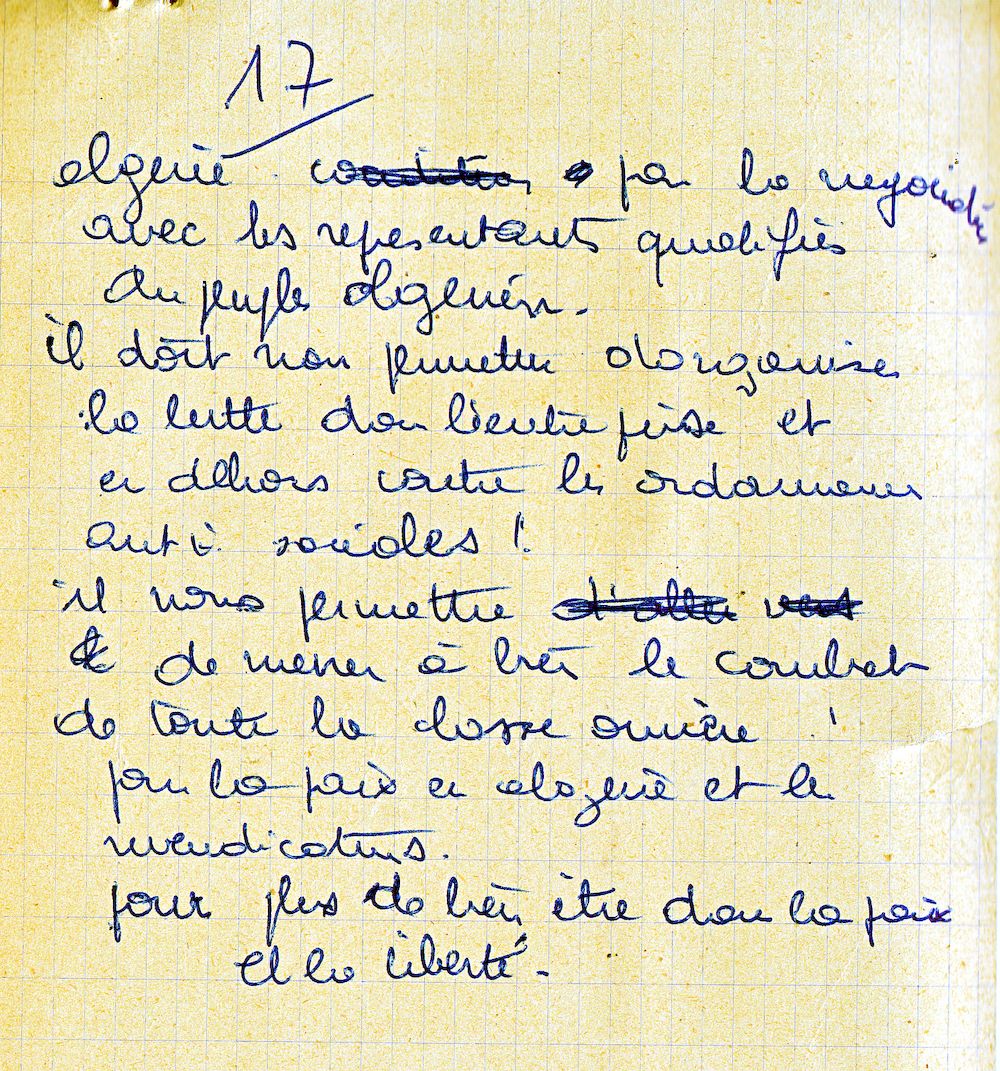 17
algerie par la negociation
avec les representants qualifiés
du peuple algerien.
il doit nous permettre d'organiser
la lutte dans l'entreprise et
en dehors contre les ordonnances
anti sociales !
il nous permettre d'aller vers
de mener à bien le combat
de toute la classe ouvrière !
pour la paix en algerie et les
revendications.
pour plus de bien être dans la paix
et la liberté -